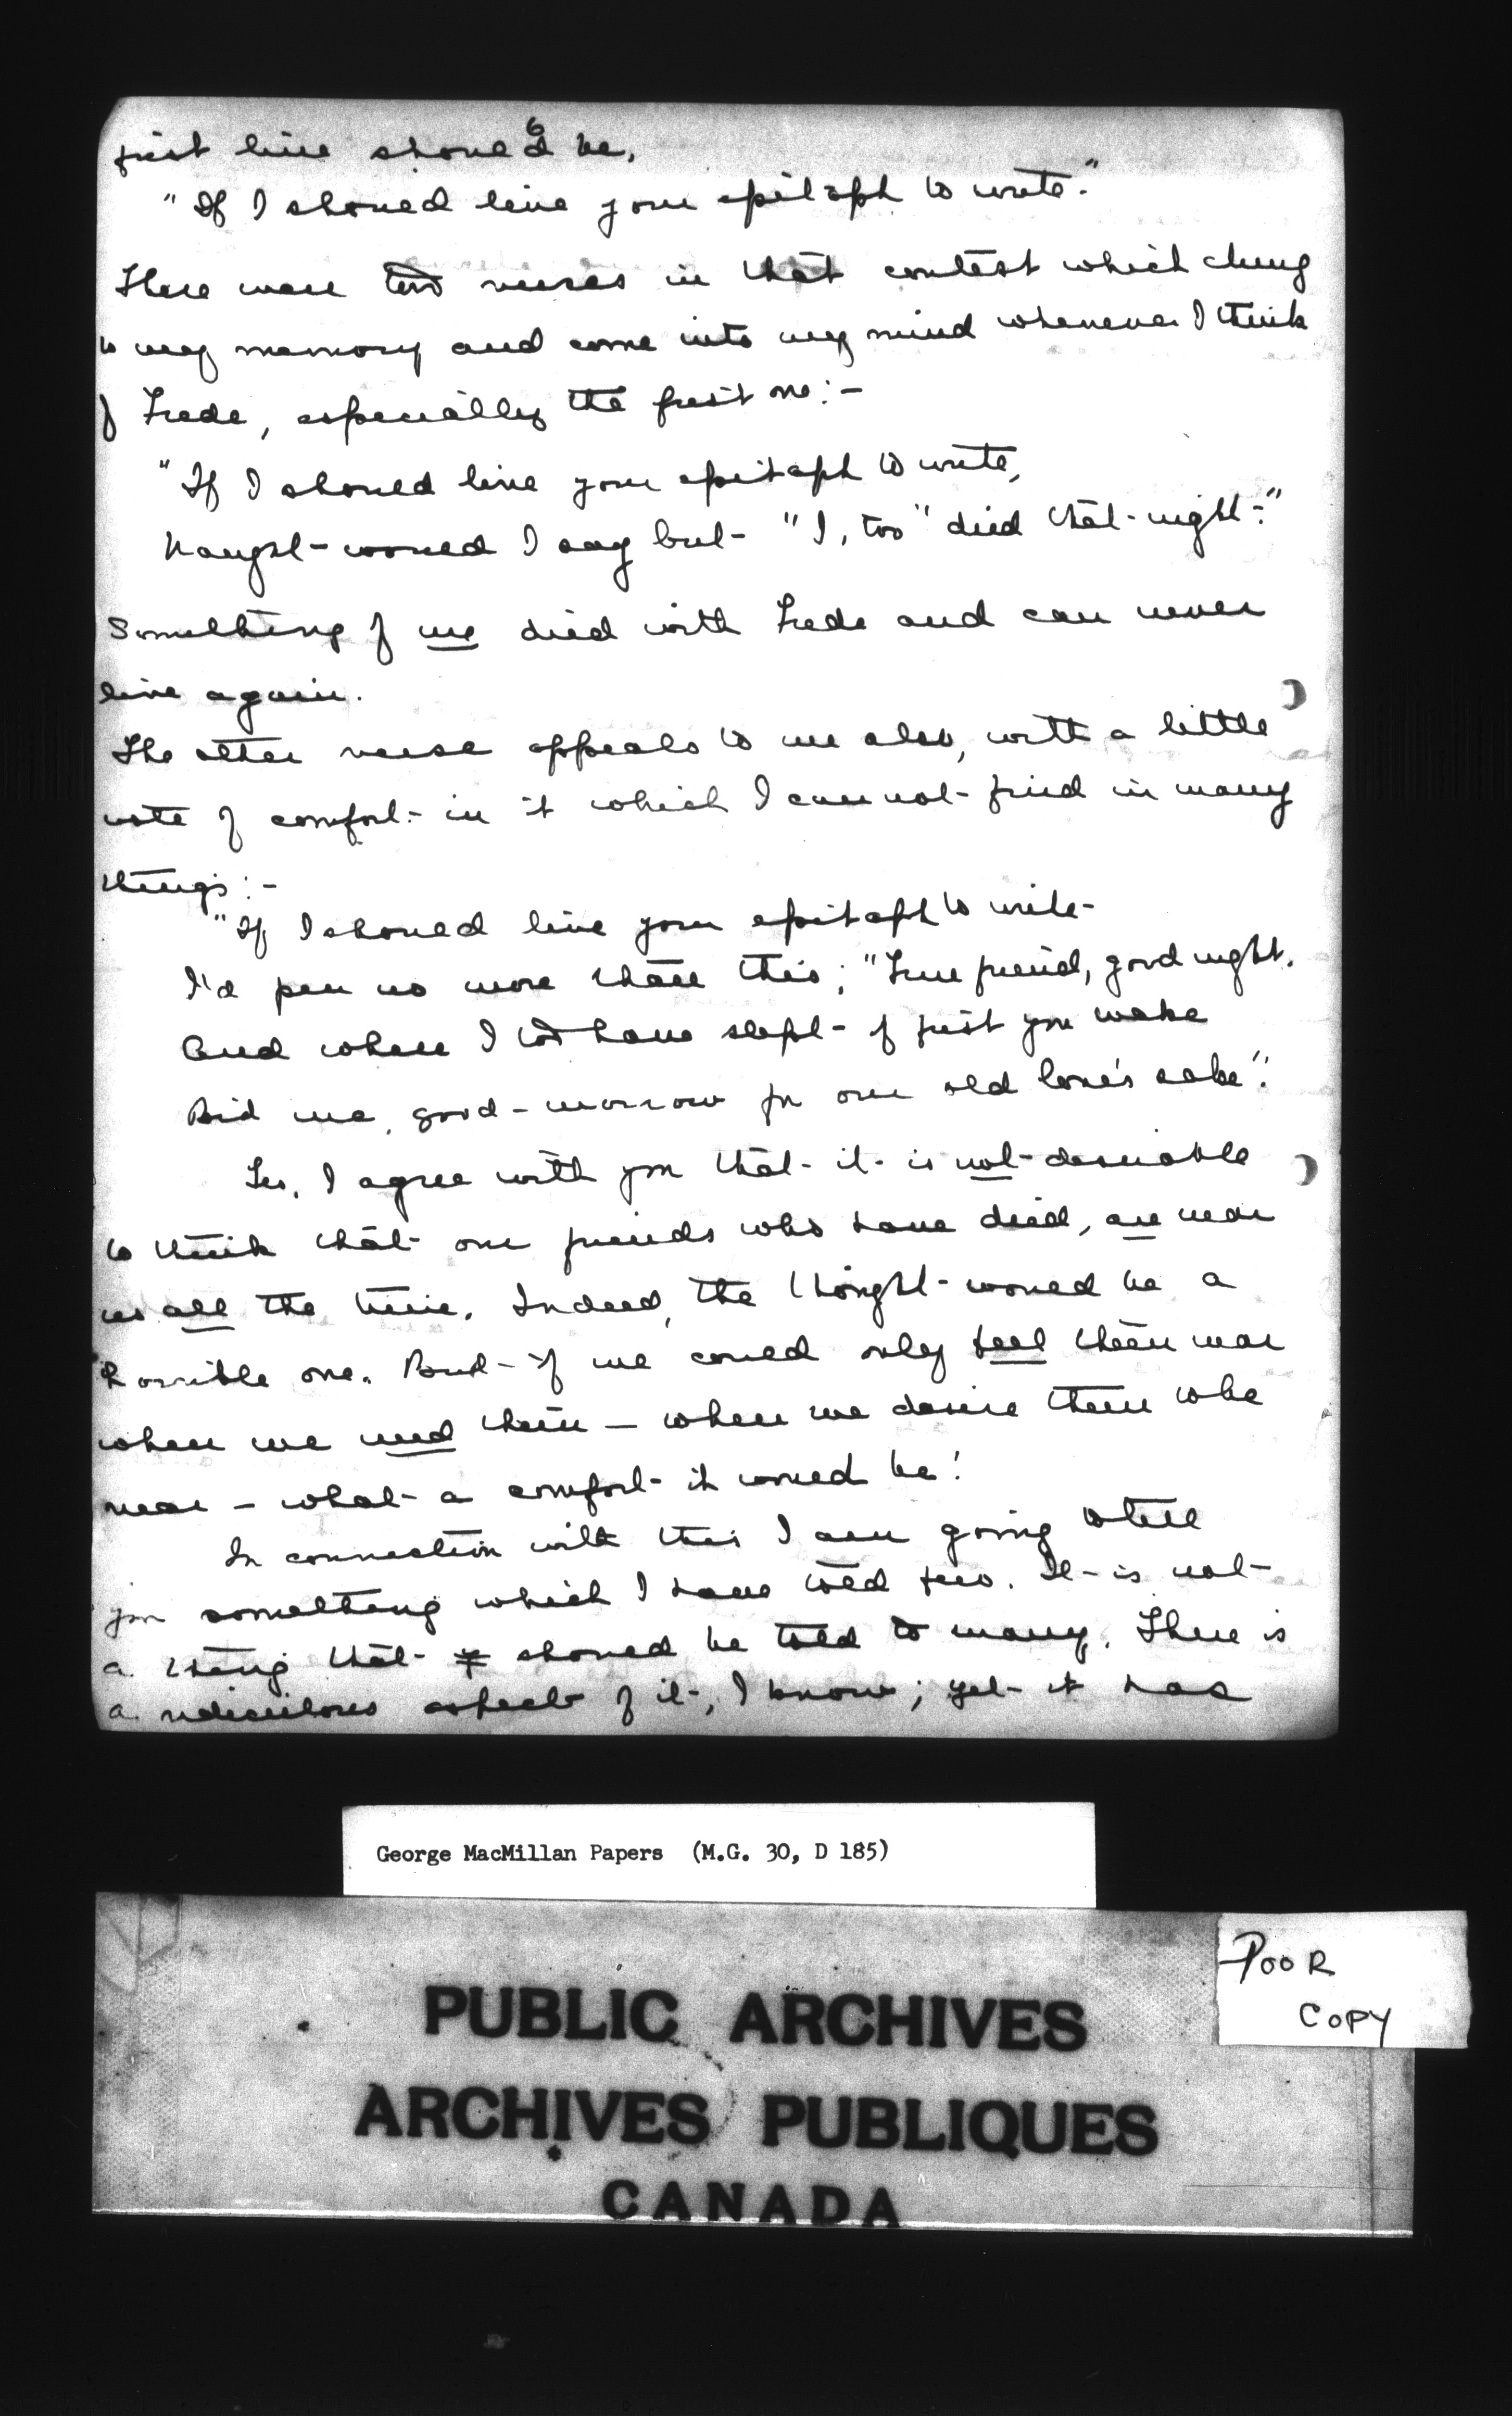 6
first line should be,
"If I should live your epitaph to write."
There were two verses in that contest which clung
to my memory and come into my mind whenever I think
of Frede, especially the first one:-
"If I should live your epitaph to write,
Naught would I say but "I, too" died that night."
Something of me died with Frede and can never
live again.
The other verse appeals to me also, with a little
note of comfort in it which I cannot find in many
things:-
"If I should live your epitaph to write
I'd pen no more than this; "True friend, good night.
And when I too have slept if first you wake
Bid me, good-morrow for our old love's sake".
Yes, I agree with you that it is not desirable
to think that our friends who have died, are near
us all the time. Indeed, the thought would be a
horrible one. But if we could only feel them near
when we need them – when we desire them to be
near – what a comfort it would be!
In connection with this I am going to tell
you something which I have told few. It is not
a thing that should be told to many. There is
a ridiculous aspect of it, I know; yet it has
George MacMillan Papers (M.G. 30, D 185)
POOR
COPY
PUBLIC ARCHIVES
ARCHIVES PUBLIQUES
CANADA